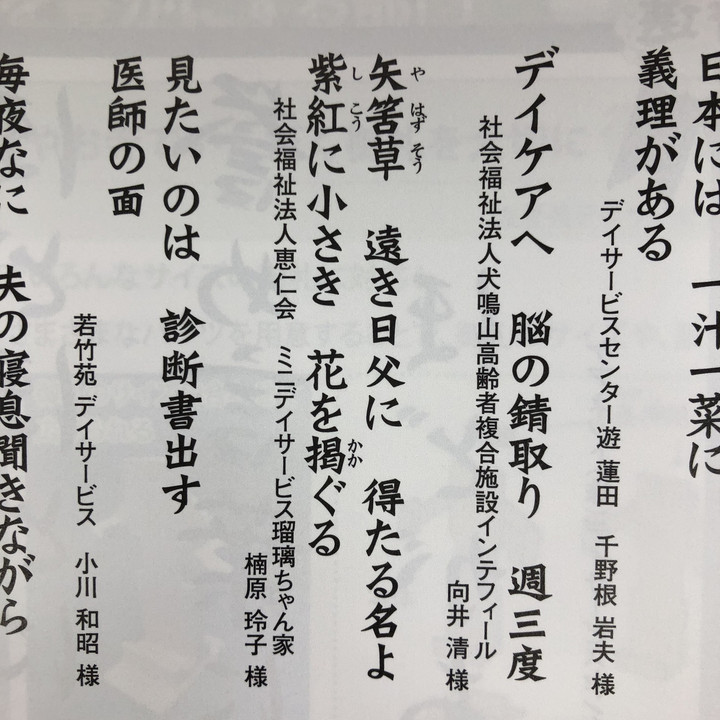 日本には 一汁一菜に
義理がある
デイサービスセンター遊 蓮田 千野根 岩夫 様
デイケアへ 脳の錆取り 週三度
社会福祉法人犬鳴山高齢者複合施設インテフィール
向井 清 様
矢筈草 遠き日父に 得たる名よ
や はず そう
紫紅に小さき 花を掲ぐる
し こう かか
社会福祉法人恵仁会 ミニデイサービス瑠璃ちゃん家
楠原 玲子 様
見たいのは 診断書出す
医師の面
若竹苑 デイサービス 小川 和昭 様
毎夜なに 夫の寝息聞きながら